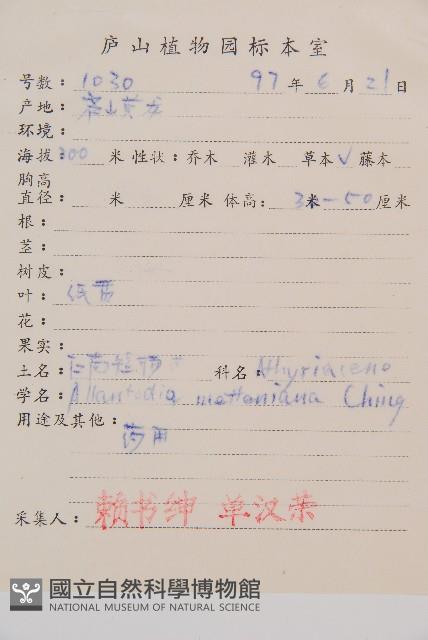 庐山植物园标本室
号数：1030 97年6月21日
产地：庐山黄龙
环境：
海拔：300米 性状：乔木 灌木 草本√ 藤本
胸高
直径： 米 厘米 体高： 3米－50厘米
根：
茎：
树皮：
叶：纸质
花：
果实：
土名：江南短肠 科名：Athyriaceae
学名：Allantodia metteniana Ching
用途及其他：
药用
采集人：赖书绅 单汉荣
國立自然科學博物館
NATIONAL MUSEUM OF NATURAL SCIENCE